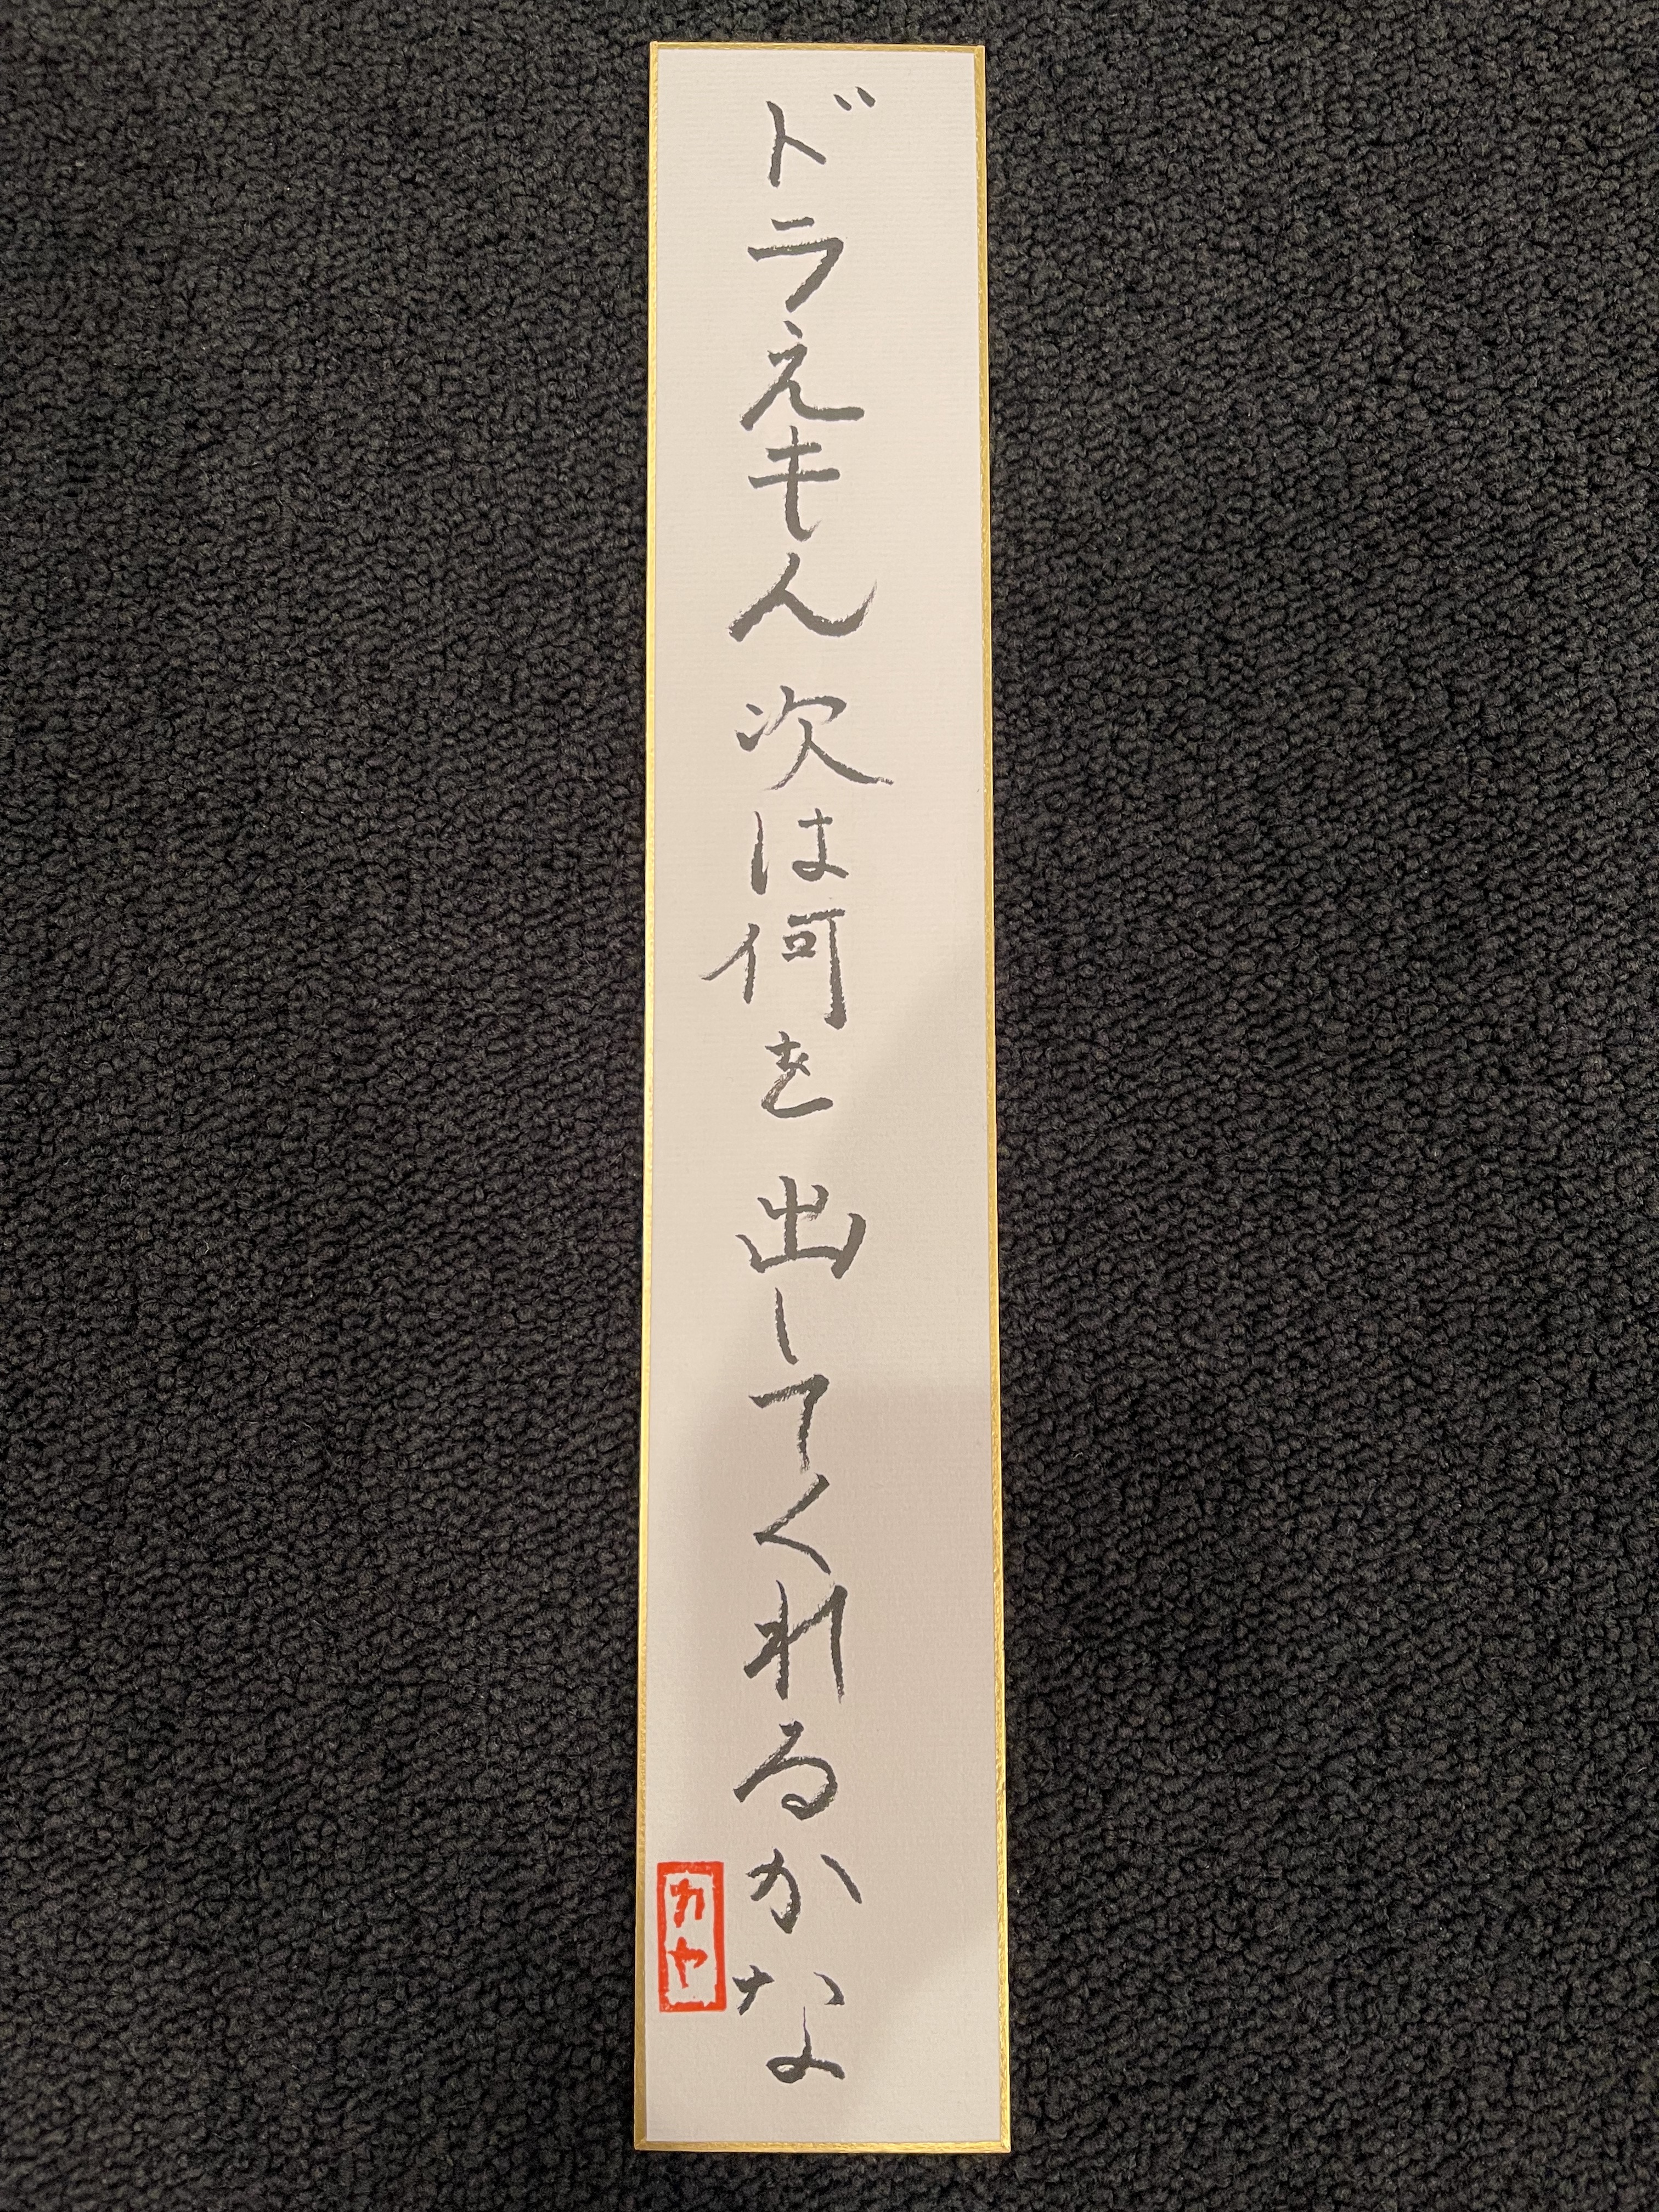 ドラえもん 次は何を 出してくれるかな
カヤ